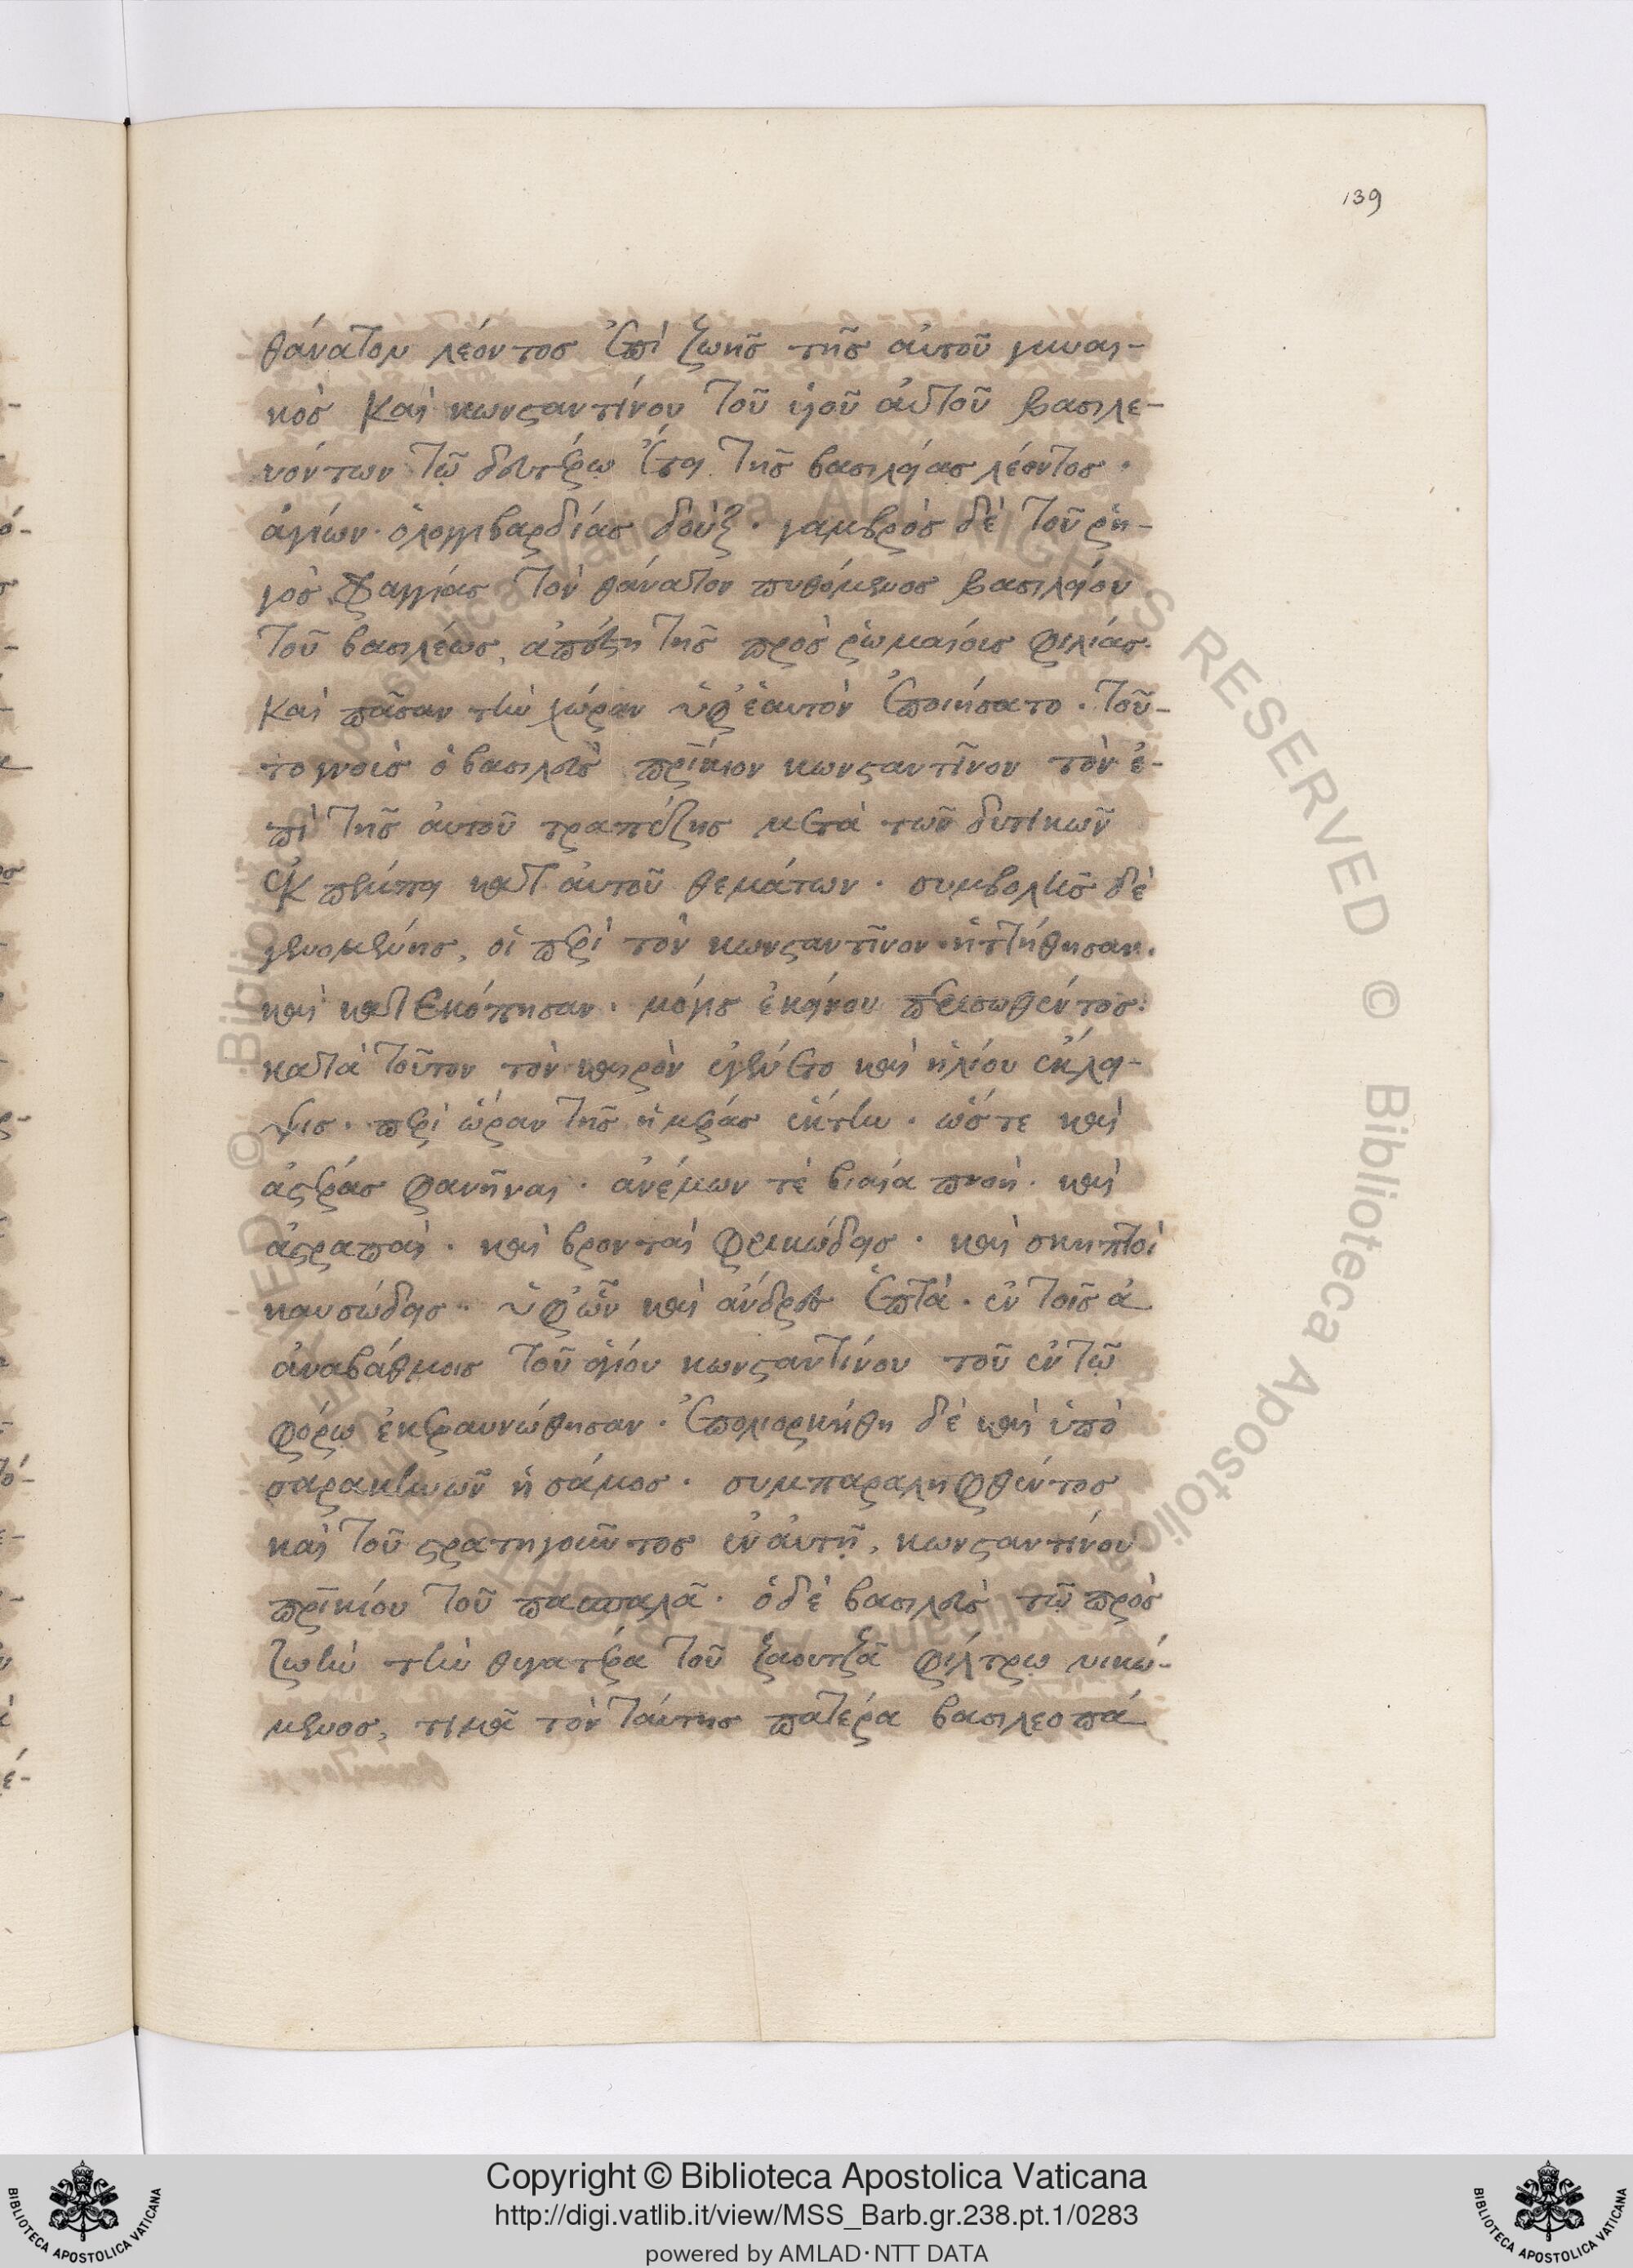 139
θάνατον λέοντος ἐπὶ ζωῆς τῆς αὐτοῦ γυναι-
κὸς καὶ κωνσταντίνου τοῦ υἱοῦ αὐτοῦ βασιλε-
υόντων τῷ δευτέρῳ ἔτει τῆς βασιλείας λέοντος.
ἀγίων· ὁ λογγιβαρδίας δοὺξ. γαμβρὸς δὲ τοῦ ῥη-
γὸς φραγγίας τὸν θάνατον πυθόμενος βασιλείου
τοῦ βασιλέως, ἀπέστη τῆς πρὸς ῥωμαίοις φιλίας.
καὶ πᾶσαν τὴν χώραν ὑφ' ἑαυτὸν ἐποιήσατο. τοῦ-
το γνοὺς ὁ βασιλεὺς πρίκιον κωνσταντῖνον τὸν ἐ-
πὶ τῆς αὐτοῦ τραπέζης μετὰ τῶν δυτικῶν
ἐκπέμπει κατ' αὐτοῦ θεμάτων. συμβολῆς δὲ
γενομένης, οἱ περὶ τὸν κωνσταντῖνον ἡττήθησαν.
καὶ κατεκόπησαν. μόγις ἐκείνου περισωθέντος.
κατὰ τοῦτον τὸν καιρὸν ἐγένετο καὶ ἡλίου ἔκλει-
ψις. περὶ ὥραν τῆς ἡμέρας ἕκτην. ὥστε καὶ
ἀστέρας φανῆναι. ἀνέμων τὲ βιαία πνοὴ. καὶ
ἀστραπαὶ. καὶ βρονταὶ φρικώδεις. καὶ σκηπτοὶ
καυσώδεις. ὑφ' ὧν καὶ ἄνδρες ἑπτὰ. ἐν τοῖς ἀ
ἀναβάθμοις τοῦ ἁγίου κωνσταντίνου τοῦ ἐν τῷ
φόρῳ ἐκεραυνώθησαν. ἐπολιορκήθη δὲ καὶ ὑπὸ
σαρακηνῶν ἡ σάμος. συμπαραληφθέντος
καὶ τοῦ στρατηγοῦντος ἐν αὐτῇ, κωνσταντίνου
πρικίου τοῦ πασπαλᾶ. ὁ δὲ βασιλεὺς τῷ πρὸς
ζωὴν τὴν θυγατέρα τοῦ ζαουτζᾶ φίλτρῳ νικώ-
μενος, τιμᾶ τὸν ταύτης πατέρα βασιλεοπά
Copyright © Biblioteca Apostolica Vaticana
http://digi.vatlib.it/view/MSS_Barb.gr.238.pt.1/0283
powered by AMLAD·NTT DATA
BIBLIOTECA APOSTOLICA VATICANA
BIBLIOTECA APOSTOLICA VATICANA